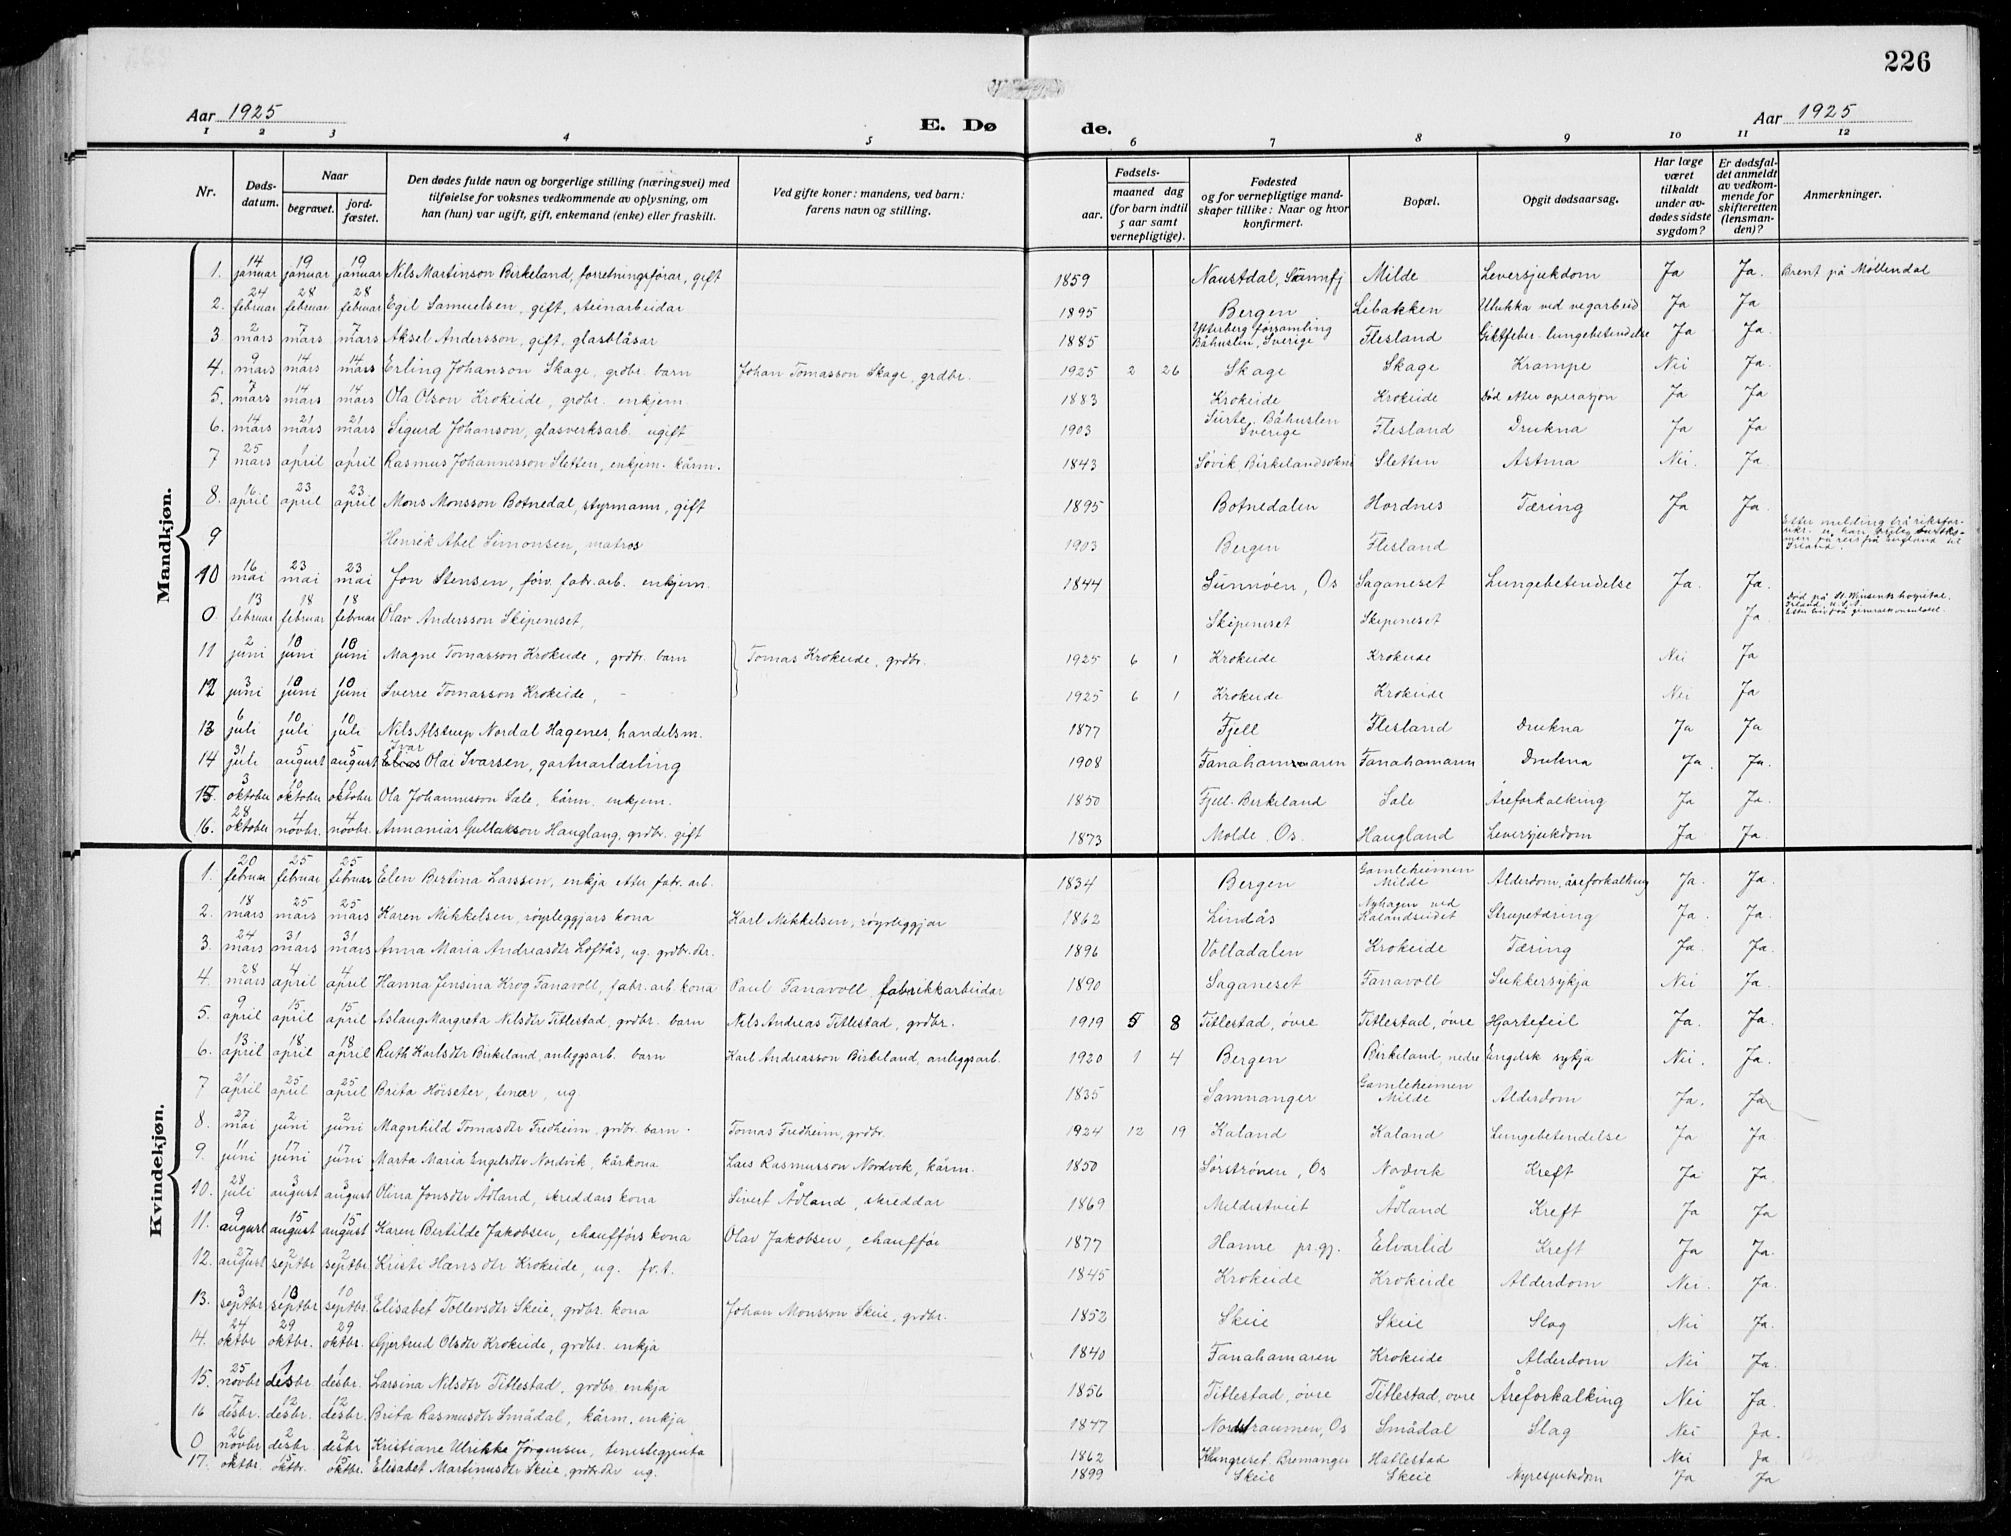 226
Aar 1925 E. Døde. Aar 1925
1 2 3 4 5 6 7 8 9 10 11 12
Nr. Døds-datum. Naar begravet. jord-fæstet. Den dødes fulde navn og borgerlige stilling (næringsvei) med tilføielse for voksnes vedkommende av oplysning, om han (hun) var ugift, gift, enkemand (enke) eller fraskilt. Ved gifte koner: mandens, ved barn: farens navn og stilling. Fødsels- aar. maaned dag (for barn indtil 5 aar samt vernepligtige). Fødested og for vernepligtige mand-skaper tillike: Naar og hvor konfirmert. Bopæl. Opgit dødsaarsag. Har læge været tilkaldt under av-dødes sidste sygdom? Er dødsfal-det anmeldt av vedkom-mende for skifteretten (lensman-den)? Anmerkninger.
Mandkjøn.
1. 14 januar 19 januar 19 januar Nils Martinson Birkeland, forretningsførar, gift 1859 Naustdal, Sunnfj Milde Leversjukdom Ja Ja. Brent på Møllendal
2. 24 februar 28 februar 28 februar Egil Samuelsen, gift, steinarbeidar 1895 Bergen Libakken Ulukka ved vegarbeid Ja Ja
3 2 mars 7 mars 7 mars Aksel Andersson, gift, glasblåsar 1885 Ytterberg forsamling Båhuslen, Sverige Flesland Giktfeber. lungebetendelse Ja Ja.
4. 9 mars 14 mars 14 mars Erling Johanson Skage, grdbr. barn Johan Tomasson Skage, grdbr. 1925 2 26 Skage Skage Krampe Nei Ja.
5. 7 mars 14 mars 14 mars Ola Olson Krokeide, grdbr. enkjem. 1883 Krokeide Krokeide Død etter operasjon Ja Ja
6. 14 mars 21 mars 21 mars Sigurd Johanson, glasverksarb. ugift 1903 Surte, Båhuslen Sverige Flesland Drukna Ja Ja
7 25 mars 1 april 1 april Rasmus Johannesson Sletten, enkjem. kårm. 1843 Søvik Birkelandsokn Sletten Astma Nei. Ja.
8. 16 april 23 april 23 april Mons Monsson Botnedal, styrmann, gift 1895 Botnedalen Hordnes Tæring Ja Ja.
9 Henrik Abel Simonsen, matros 1903 Bergen Flesland Etter melding frå
10 16 mai 23 mai 23 mai Jon Stensen, førv. fabr.arb. enkjem. 1844 Sunnøen, Os Saganeset Lungebetendelse Ja. Ja.
0. 13 februar 18 februar 18 februar Olav Andersson Skipeneset, Skipeneset Skipeneset Ja. Død på St. Vinsents hospital
11 2 juni 10 juni 10 juni Magne Tomasson Krokeide, grdbr. barn Tomas Krokeide, grdbr. 1925 6 1 Krokeide Krokeide Nei Ja
12 3 juni 10 juni 10 juni Sverre Tomasson Krokeide, - 1925 6 1 Krokeide Krokeide Nei Ja
13 6 juli 10 juli 10 juli Nils Alstrup Nordal Hagenes, handelsm. 1877 Fjell Flesland Drukna Ja Ja
14 31 juli 5 august 5 august Ivar Elias Olai Ivarsen, gartnarlærling 1908 Fanahammaren Fanahamaren Drukna Ja. Ja.
15 3 oktober 10 oktober 10 oktober Ola Johannesson Sale, kårm. enkjem. 1850 Fjell. Birkeland Sale Åreforkalking Ja Ja.
16. 28 oktober 4 novbr. 4 novbr. Annanias Gullakson Hauglang, grdbr. gift 1873 Molde. Os. Haugland Leversjukdom Ja Ja.
Kvindekjøn.
1. 20 februar 25 februar 25 februar Elen Bertina Larssen, enkja etter fabr. arb. 1834 Bergen Gamleheimen Milde Alderdom, åreforkalking Ja. Ja.
2. 18 mars 25 mars 25 mars Karen Mikkelsen, røyrleggjars kona Karl Mikkelsen, røyrleggjar 1862 Lindås Nyhagen ved Kalandseidet Strupetæring Ja. Ja.
3. 24 mars 31 mars 31 mars Anna Maria Andreasdtr Loftås, ug. grdbr.dtr. 1896 Volladalen Krokeide Tæring Ja. Ja.
4. 28 mars 4 april 4 april Hanna Jensina Krog Fanavoll, fabr. arb. kona Paul Fanavoll, fabrikkarbeidar 1890 Saganeset Fanavoll Sukkersykja Nei Ja.
5. 9 april 15 april 15 april Aslaug Margreta Nilsdtr Titlestad, grdbr. barn Nils Andreas Titlestad, grdbr. 1919 5 8 Titlestad, øvre Titlestad, øvre Hjartefeil Ja. Ja.
6. 13 april 18 april 18 april Ruth Karlsdtr Birkeland, anleggsarb. barn Karl Andreasson Birkeland, anleggsarb. 1920 1 4 Bergen Birkeland, nedre Engelsk sykja Nei. Ja.
7 21 april 25 april 25 april Brita Høiseter, tenar, ug. 1835 Samnanger Gamleheimen Milde Alderdom Ja. Ja
8. 27 mai 2 juni 2 juni Magnhild Tomasdtr Fredheim, grdbr. barn. Tomas Fredheim, grdbr. 1924 12 19 Kaland Kaland Lungebetendelse Ja Ja
9. 11 juni 17 juni 17 juni Marta Maria Engelsdtr Nordvik, kårkona Lars Rasmusson Nordvik, kårm. 1850 Sørstrønen, Os Nordvik Kreft Ja Ja.
10. 28 juli 3 august 3 august Olina Jonsdtr Ådland, skreddars kona Sivert Ådland, skreddar 1869 Mildestveit Ådland Kreft Ja Ja
11. 9 august 15 august 15 august Karen Bertilde Jakobsen, chaufførs kona Olav Jakobsen, chauffør 1877 Hamre pr.gj. Elvarlid Kreft Ja Ja.
12. 27 august 2 septbr 2 septbr Kristi Hansdtr Krokeide, ug. fv.t. 1845 Krokeide Krokeide Alderdom Nei. Ja.
13. 3 septbr 10 septbr 10 septbr. Elisabet Tollevsdtr Skeie, grdbr. kona Johan Monsson Skeie, grdbr. 1852 Skeie Skeie Slag Nei Ja.
14. 24 oktbr 29 oktbr. 29 oktbr. Gjertrud Olsdtr Krokeide, grdbr. enkja 1840 Fanahamaren Krokeide Alderdom Nei Ja.
15. 25 novbr 1 desbr 1 desbr. Larsina Nilsdtr Titlestad, grdbr. enkja 1856 Titlestad, øvre Titlestad, øvre Åreforkalking Nei Ja.
16 7 desbr. 12 desbr. 12 desbr. Brita Rasmusdtr Smådal, kårm. enkja 1847 Nordstraumen, Os Smådal Slag Nei Ja.
0 26 novbr 2 desbr. 2 desbr Kristiane Ulrikke Jørgensen, tenestegjenta 1862 Bremanger Hatlestad Nei Ja
17. oktbr. 15 oktbr. 15 oktbr. Elisabet Martinusdtr Skeie, grdbr.dtr ug. 1899 Skeie Skeie Nyresjukdom Ja Ja